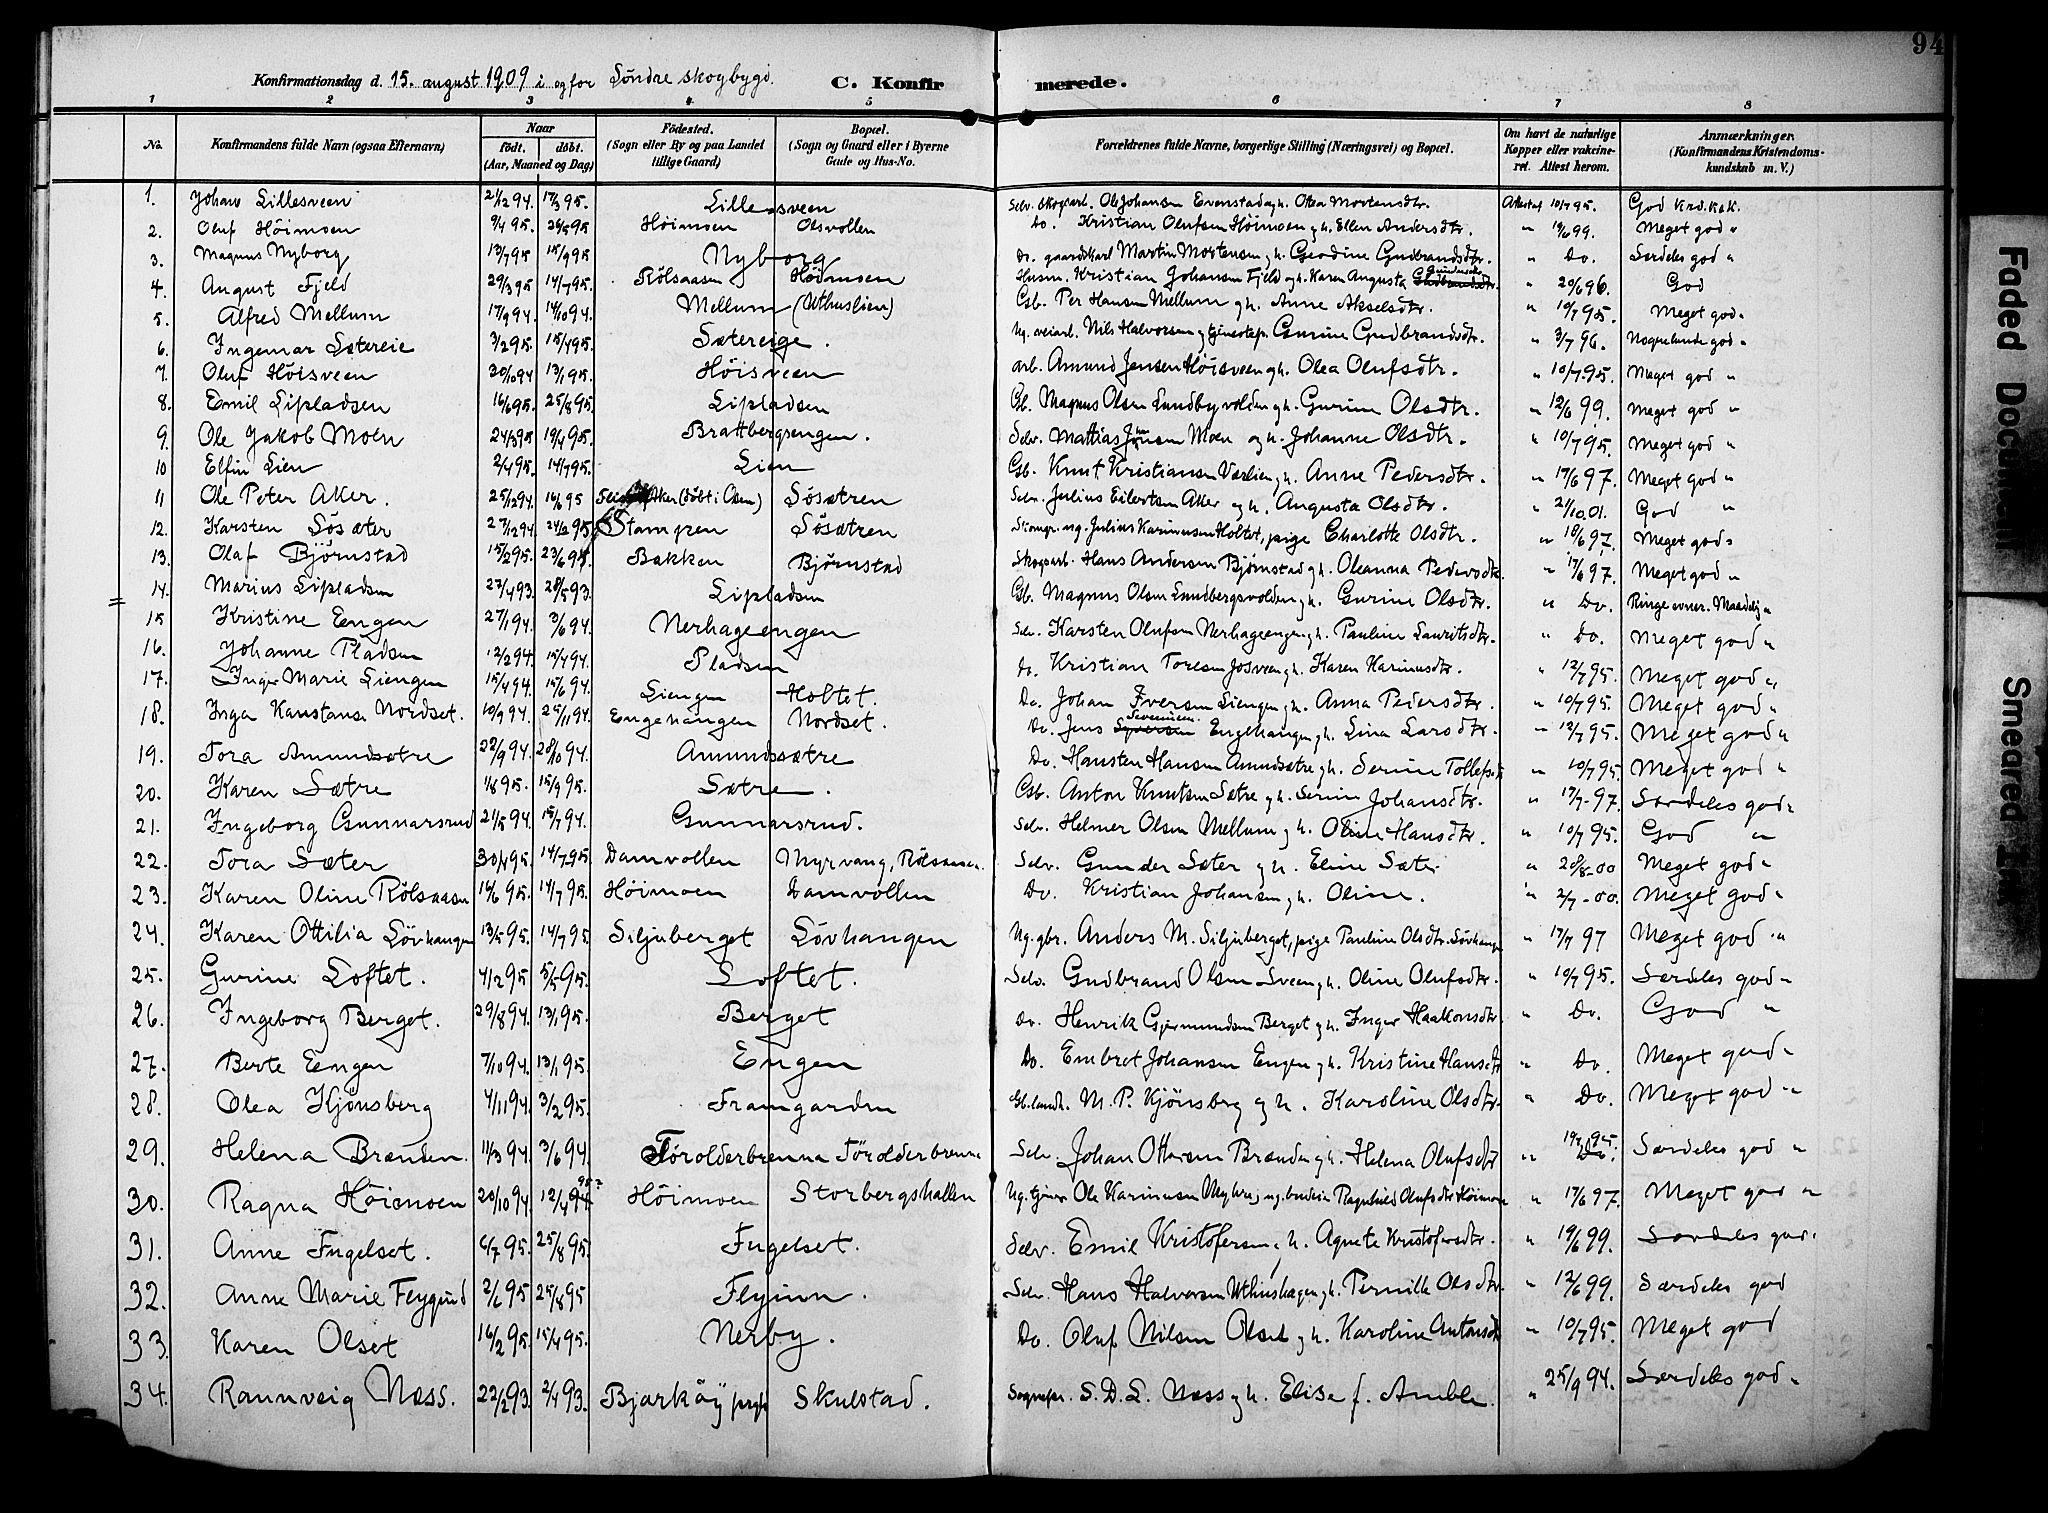 94
Konfirmationsdag d. 15. august 1909 i og for Söndre skogbygd.
C. Konfirmerede.
1 2 3 4 5 6 7 8
No. Konfirmandens fulde Navn (ogsaa Efternavn) Naar født. døbt. (Aar, Maaned og Dag) Fødested. (Sogn eller By og paa Landet tillige Gaard) Bopæl. (Sogn og Gaard eller i Byerne Gade og Hus-No. Forældrenes fulde Navne, borgerlige Stilling (Næringsvei) og Bopæl. Om havt de naturlige Kopper eller vakcineret. Attest herom. Anmærkninger. (Konfirmandens Kristendomskundskab m. V.)
1. Johans Lillesveen 21/12 94. 17/3 95. Lillesveen Selv. skogsarb. Ole Johansen Evenstad og h. Olea Mortensdtr. Attestas 10/7 95. God Krd.ksk.
2. Oluf Höimoen 9/4 95. 26/5 95 Höimoen Olsvollen Do. Kristian Olufsen Höimoen g h. Ellen Andersdtr. " 19/6 99. Meget god "
3. Magnus Nyborg 13/7 95 15/9 95 Nyborg Do. gaardkarl Martin Mortensen g h. Geodine Gudbrandsdtr. " Do. Særdeles god "
4. August Fjeld 29/3 95 14/7 95. Rölsaasen Höimoen Husm. Kristian Johansen Fjeld og h. Karen Augusta Gundersdtr. " 20/6 96. God
5. Alfred Mellum 17/9 94. 14/10 94. Mellum (Uthuslien) Gb. Per Hansen Mellum g h. Anne Akselsdtr. " 10/7 95. Meget god "
6. Ingemar Sætereie 3/2 95. 15/4 95. Sætereige. Ug. veiarb. Nils Halvorsen og tjenestep. Gurine Gudbrandsdtr. " 3/7 96. Nogenlunde god "
7. Oluf Höisveen 30/10 94 13/1 95. Höisveen arb. Amund Jensen Höisveen g h. Olea Olufsdtr. " 10/7 95. Meget god "
8. Emil Lipladsen 16/6 95. 25/8 95. Lipladsen Gb. Magnus Olsen Lundbyvolden g h. Gurine Olsdtr. " 12/6 99. Meget god "
9. Ole Jakob Moen 24/3 95 19/4 95. Brattbergsengen. Selv. Mattias Jensen Moen og h. Johanne Olsdtr. " 10/7 95. Meget god "
10 Elfin Lien 2/4 95. 14/7 95. Lien Gb. Knut Kristiansen Vælien g h. Anne Pedersdtr. " 17/6 97. Meget god "
11 Ole Peter Aker. 25/12 94. 16/1 95 Aker (döbt i Osen) Sösætren Selv. Julius Eilertsen Aker og h. Augusta Olsdtr. " 21/10. 01. God "
12. Karsten Sösæter 27/12 94. 24/2 95. Stampen Sösætren Stomgr. ug. Julius Karinusen Holtet, pige Charlotte Olsdtr. " 18/6 97. Meget god "
13. Olaf Björnstad 15/2 95. 23/6 95. Bakken Björnstad Skogsarb. Hans Andersen Björnstad g h. Oleanna Pedersdtr. " 17/6 97. Meget god "
= 14. Marius Lipladsen 27/4 93. 28/5 93. Lipladsen Gb. Magnus Olsen Lundbergsvolden g h. Gurine Olsdtr. " Do. Ringe evner. Maadelig "
15 Kristine Eengen 27/1 94. 3/6 94. Nerhageengen Selv. Karsten Olufsen Nerhageengen g h. Pauline Lauritsdtr. " Do. Meget god "
16. Johanne Pladsen 12/2 94. 15/4 94. Pladsen Do. Kristian Toresen Josveen g h. Karen Karinusdtr. " 12/7 95. Meget god "
17. Inger Marie Liengen 15/4 94. 15/6 94. Liengen Holtet. Do. Johan Iversen Liengen g h. Anna Pedersdtr. " 10/7 95. Meget god "
18. Inga Kanstanse Nordset. 10/9 94. 25/11 94. Engehaugen Nordset. Do. Jens Severinsen Engehaugen g h. Lina Larsdtr. " 12/7 95. Meget god "
19. Tora Amundsætre 22/9 94. 28/10 94. Amundsætre Do. Hansten Hansen Amundsætre g h. Serine Tollefsdtr. " 10/7 95. Meget god "
20. Karen Sætre 1/8 95. 15/9 95. Sætre. Gsb. Anton Knutsen Sætre g h. Serine Johansdtr. " 17/7 97. Særdeles god "
21. Ingeborg Gunnarsrud 21/5 94. 15/7 94. Gunnarsrud. Selv. Helmer Olsen Mellum g h. Oline Hansdtr. " 10/7 95. God "
22. Tora Sæter 30/4 95. 14/7 95. Damvollen Myrvang, Rölsaasen. Selv. Gunder Sæter g h. Eline Sæter " 28/8-00 Meget god "
23. Karen Oline Rölsaasen 16/6 95. 14/7 95. Höimoen Damvollen Do. Kristian Johansen g h. Oline. " 2/7-00. Meget god "
24. Karen Ottilia Lövhaugen 13/5 95. 14/7 95. Siljuberget Lövhaugen Ug. gbr. Anders M. Siljuberget, pige Pauline Olsdtr. Lövhaugen " 17/7 97 Meget god "
25. Gurine Loftet. 4/2 95. 5/5 95. Loftet. Selv. Gudbrand Olsen Sveen g h. Oline Olufsdtr. " 10/7 95. Særdeles god "
26. Ingeborg Berget. 29/8 94. 13/1 95. Berget Do. Henrik Gjermundsen Berget g h. Inger Haakonsdtr. " Do. God "
27. Berte Eengen 7/10 94. 13/1 95. Engen Do. Embret Johansen Engen g h. Kristine Hansdtr " Do. Meget god "
28. Olea Kjönsberg 4/11 94. 3/2 95. Framgarden Gb. landh. M. P. Kjönsberg g h. Karoline Olsdtr. " Do. Meget god "
29. Helena Brænden. 11/3 94. 3/6 94. Törolderbrenna Törolderbrenna Selv. Johan Ottersen Brænden g h. Helena Olufsdtr " 19/7 95. Særdeles god "
30. Ragna Höimoen 20/10 94. 12/4 94. 95? Höimoen Storbergshallen Ug. tjener Ole Karinusen Myhre, ug. budeie Ragnhild Olufsdtr Höimoen " 17/6 97. Meget god "
31. Anne Ingelset. 6/7 95. 25/8 95. Ingelset. Selv. Emil Kristofersen g h. Agnete Kristofersdtr. " 19/6 99. Særdeles god.
32. Anne Marie Flygind 2/6 95 25/8 95 Flyinn. Selv. Hans Halvorsen Uthushagen g h. Pernille Olsdtr. " 12/6 99. Særdeles god
33. Karen Olset 16/2 95. 15/4 95. Nerby. Do. Oluf Nilsen Olset g h. Karoline Antonsdtr " 10/7 95. Meget god
34. Raunveig Næss. 22/2 93. 2/4 93. Bjarköy prgj. Skulstad. Sognepr. S. D. L. Næss g h. Elise f. Amble. " 25/9 94. Særdeles god "
Faded Document
Smeared Ink